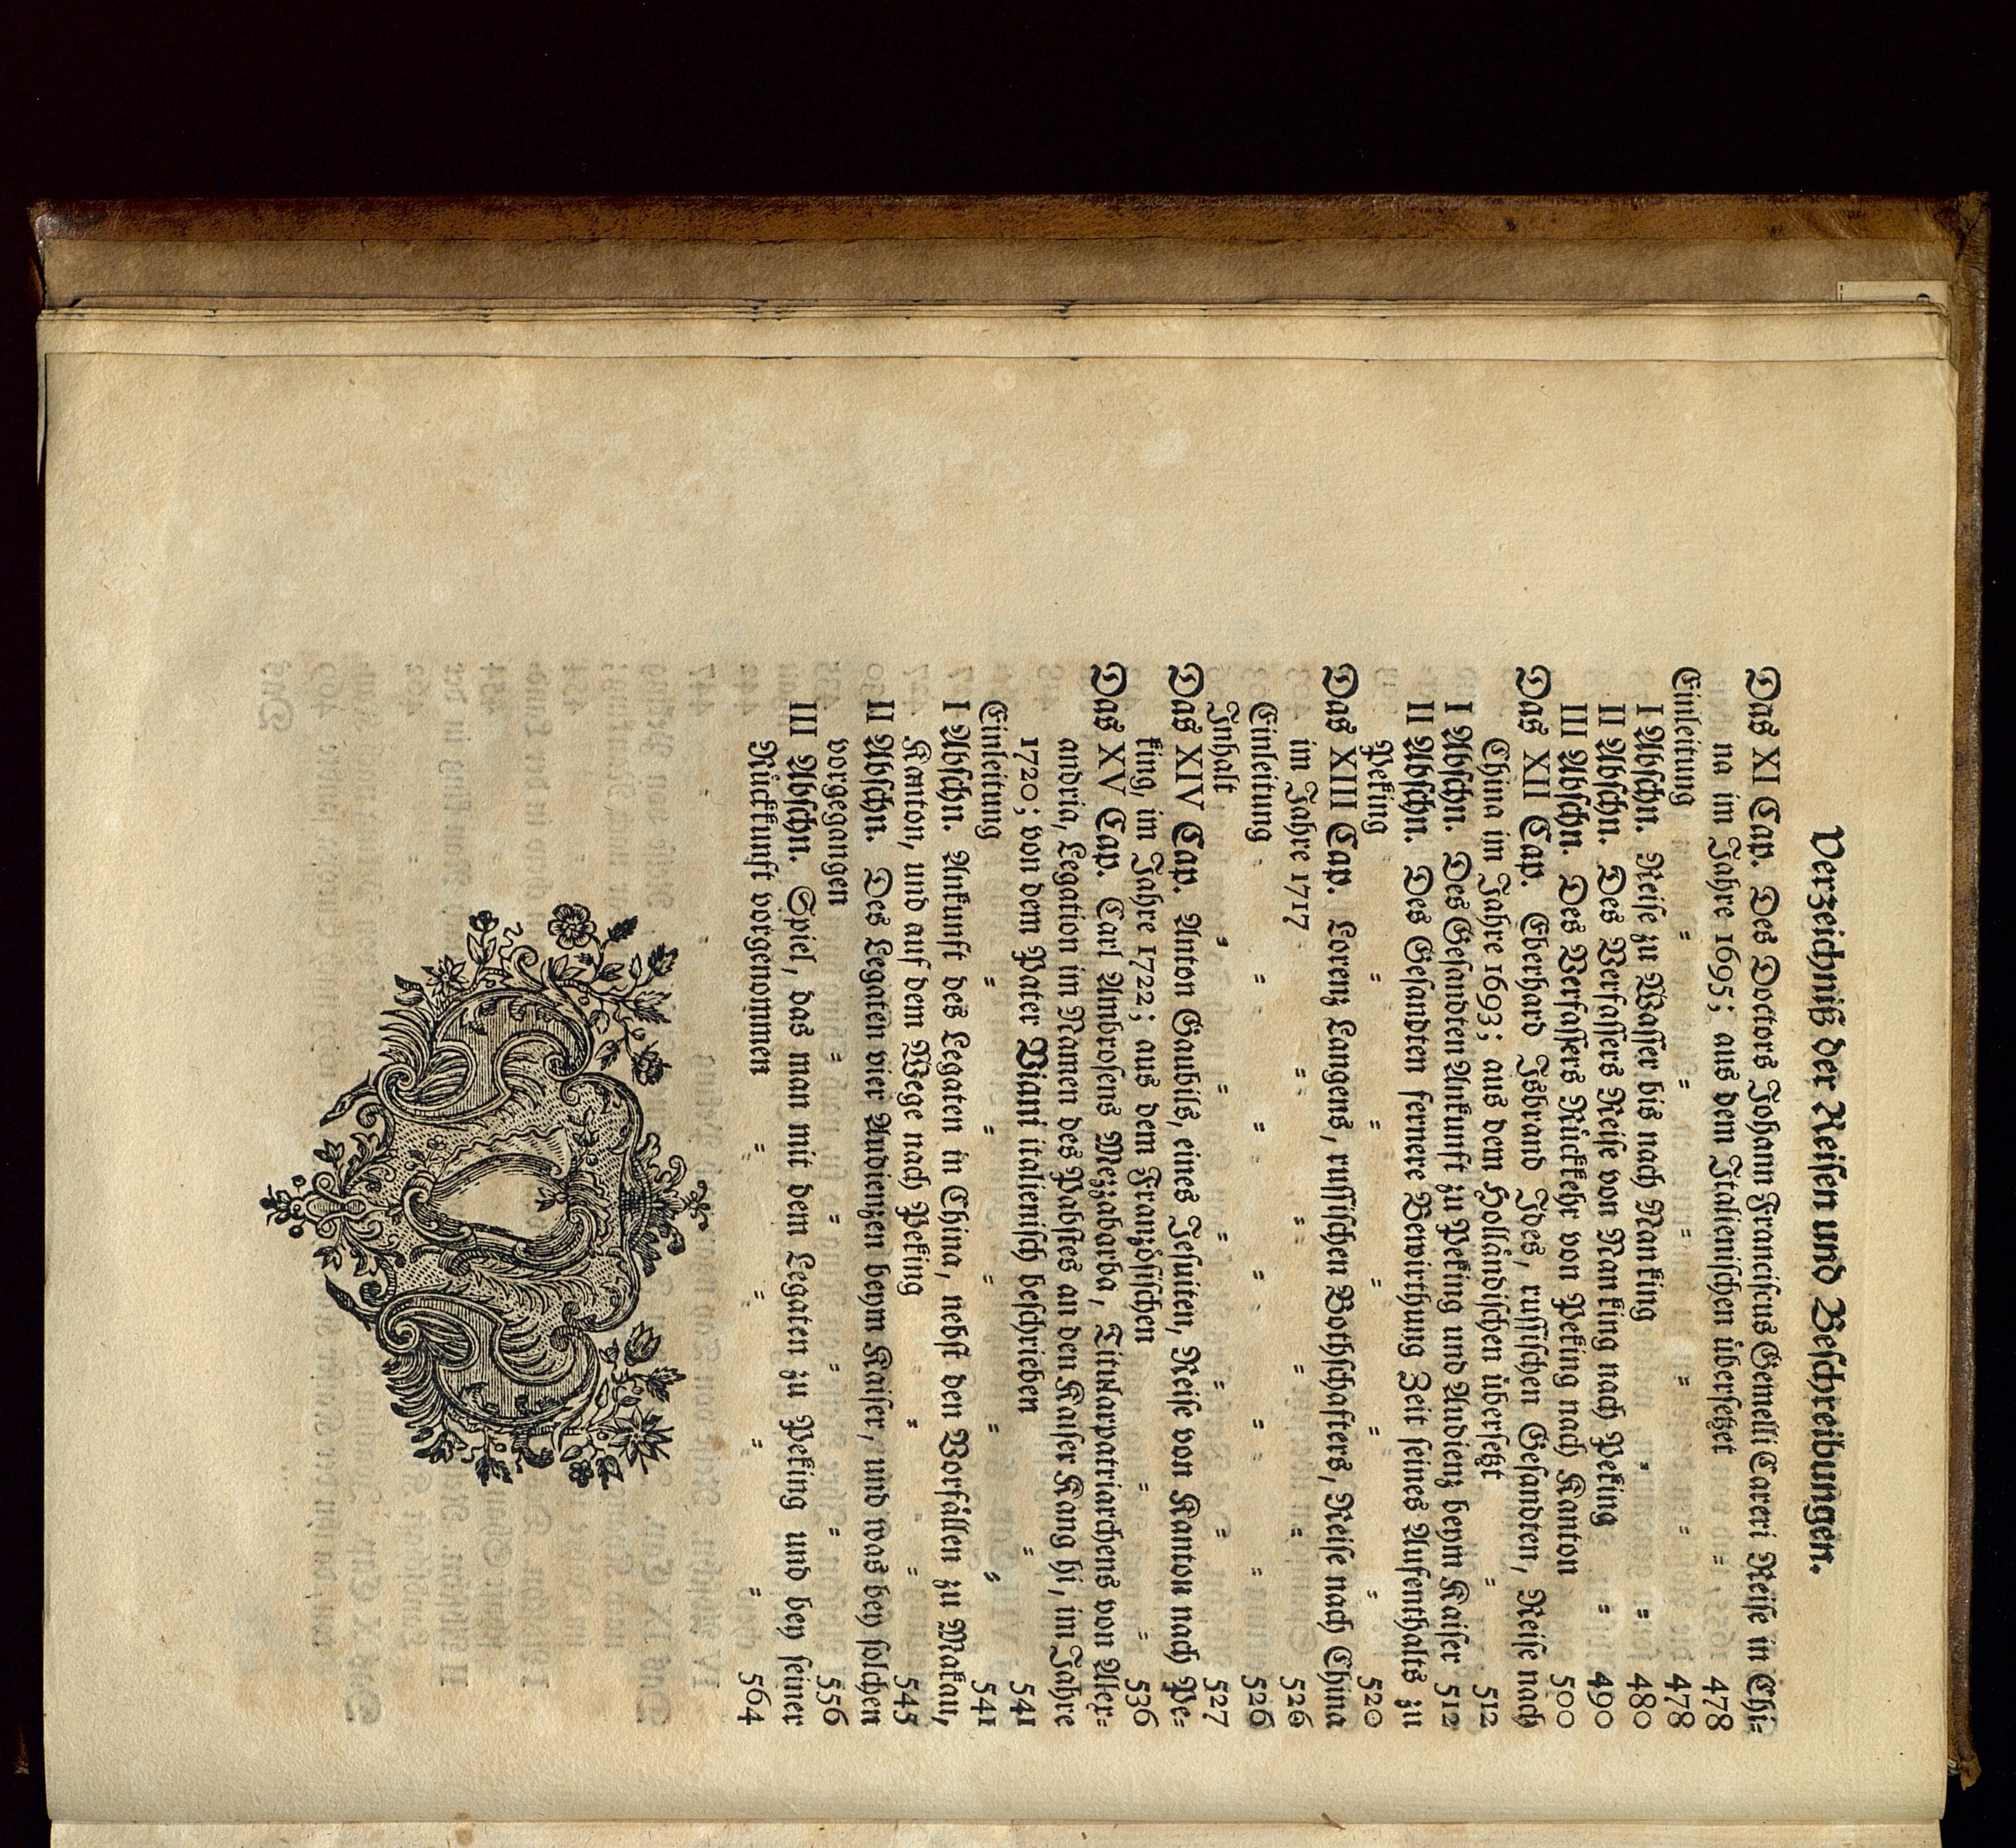 Verzeichniß der Reisen und Beschreibungen.
Das XI Cap. Des Doctors Johann Franciscus Gemelli Carreri Reise in Chi=
na im Jahre 1695; aus dem Italienischen übersetzet = 478
Einleitung = = = = = 478
I Abschn. Reise zu Wasser bis nach Nanking = = 480
II Abschn. Des Verfassers Reise von Nanking nach Peking = 490
III Abschn. Des Verfassers Rückkehr von Peking nach Kanton 500
Das XII Cap. Eberhard Isbrand Ides, russischen Gesandten, Reise nach
China im Jahre 1693; aus dem Holländischen übersetzt = 512
I Abschn. Des Gesandten Ankunft zu Peking und Audienz beym Kaiser 512
II Abschn. Des Gesandten fernere Bewirthung Zeit seines Aufenthalts zu
Peking = = = = = 520
Das XIII Cap. Lorenz Langens, russischen Bothschafters, Reise nach China
im Jahre 1717 = = = = 526
Einleitung = = = = = 526
Inhalt = = = = = 527
Das XIV Cap. Anton Gaubils, eines Jesuiten, Reise von Kanton nach Pe=
king, im Jahre 1722; aus dem Französischen = = 536
Das XV Cap. Carl Ambrosens Mezzabarba, Titularpatriarchens von Alex=
andria, Legation im Namen des Pabstes an den Kaiser Kang hi, im Jahre
1720; von dem Pater Viani italienisch beschrieben = 541
Einleitung = = = = = 541
I Abschn. Ankunft des Legaten in China, nebst den Vorfällen zu Makau,
Kanton, und auf dem Wege nach Peking = = 545
II Abschn. Des Legaten vier Audienzen beym Kaiser, und was bey solchen
vorgegangen = = = = 556
III Abschn. Spiel, das man mit dem Legaten zu Peking und bey seiner
Rückkunft vorgenommen = = = = 564